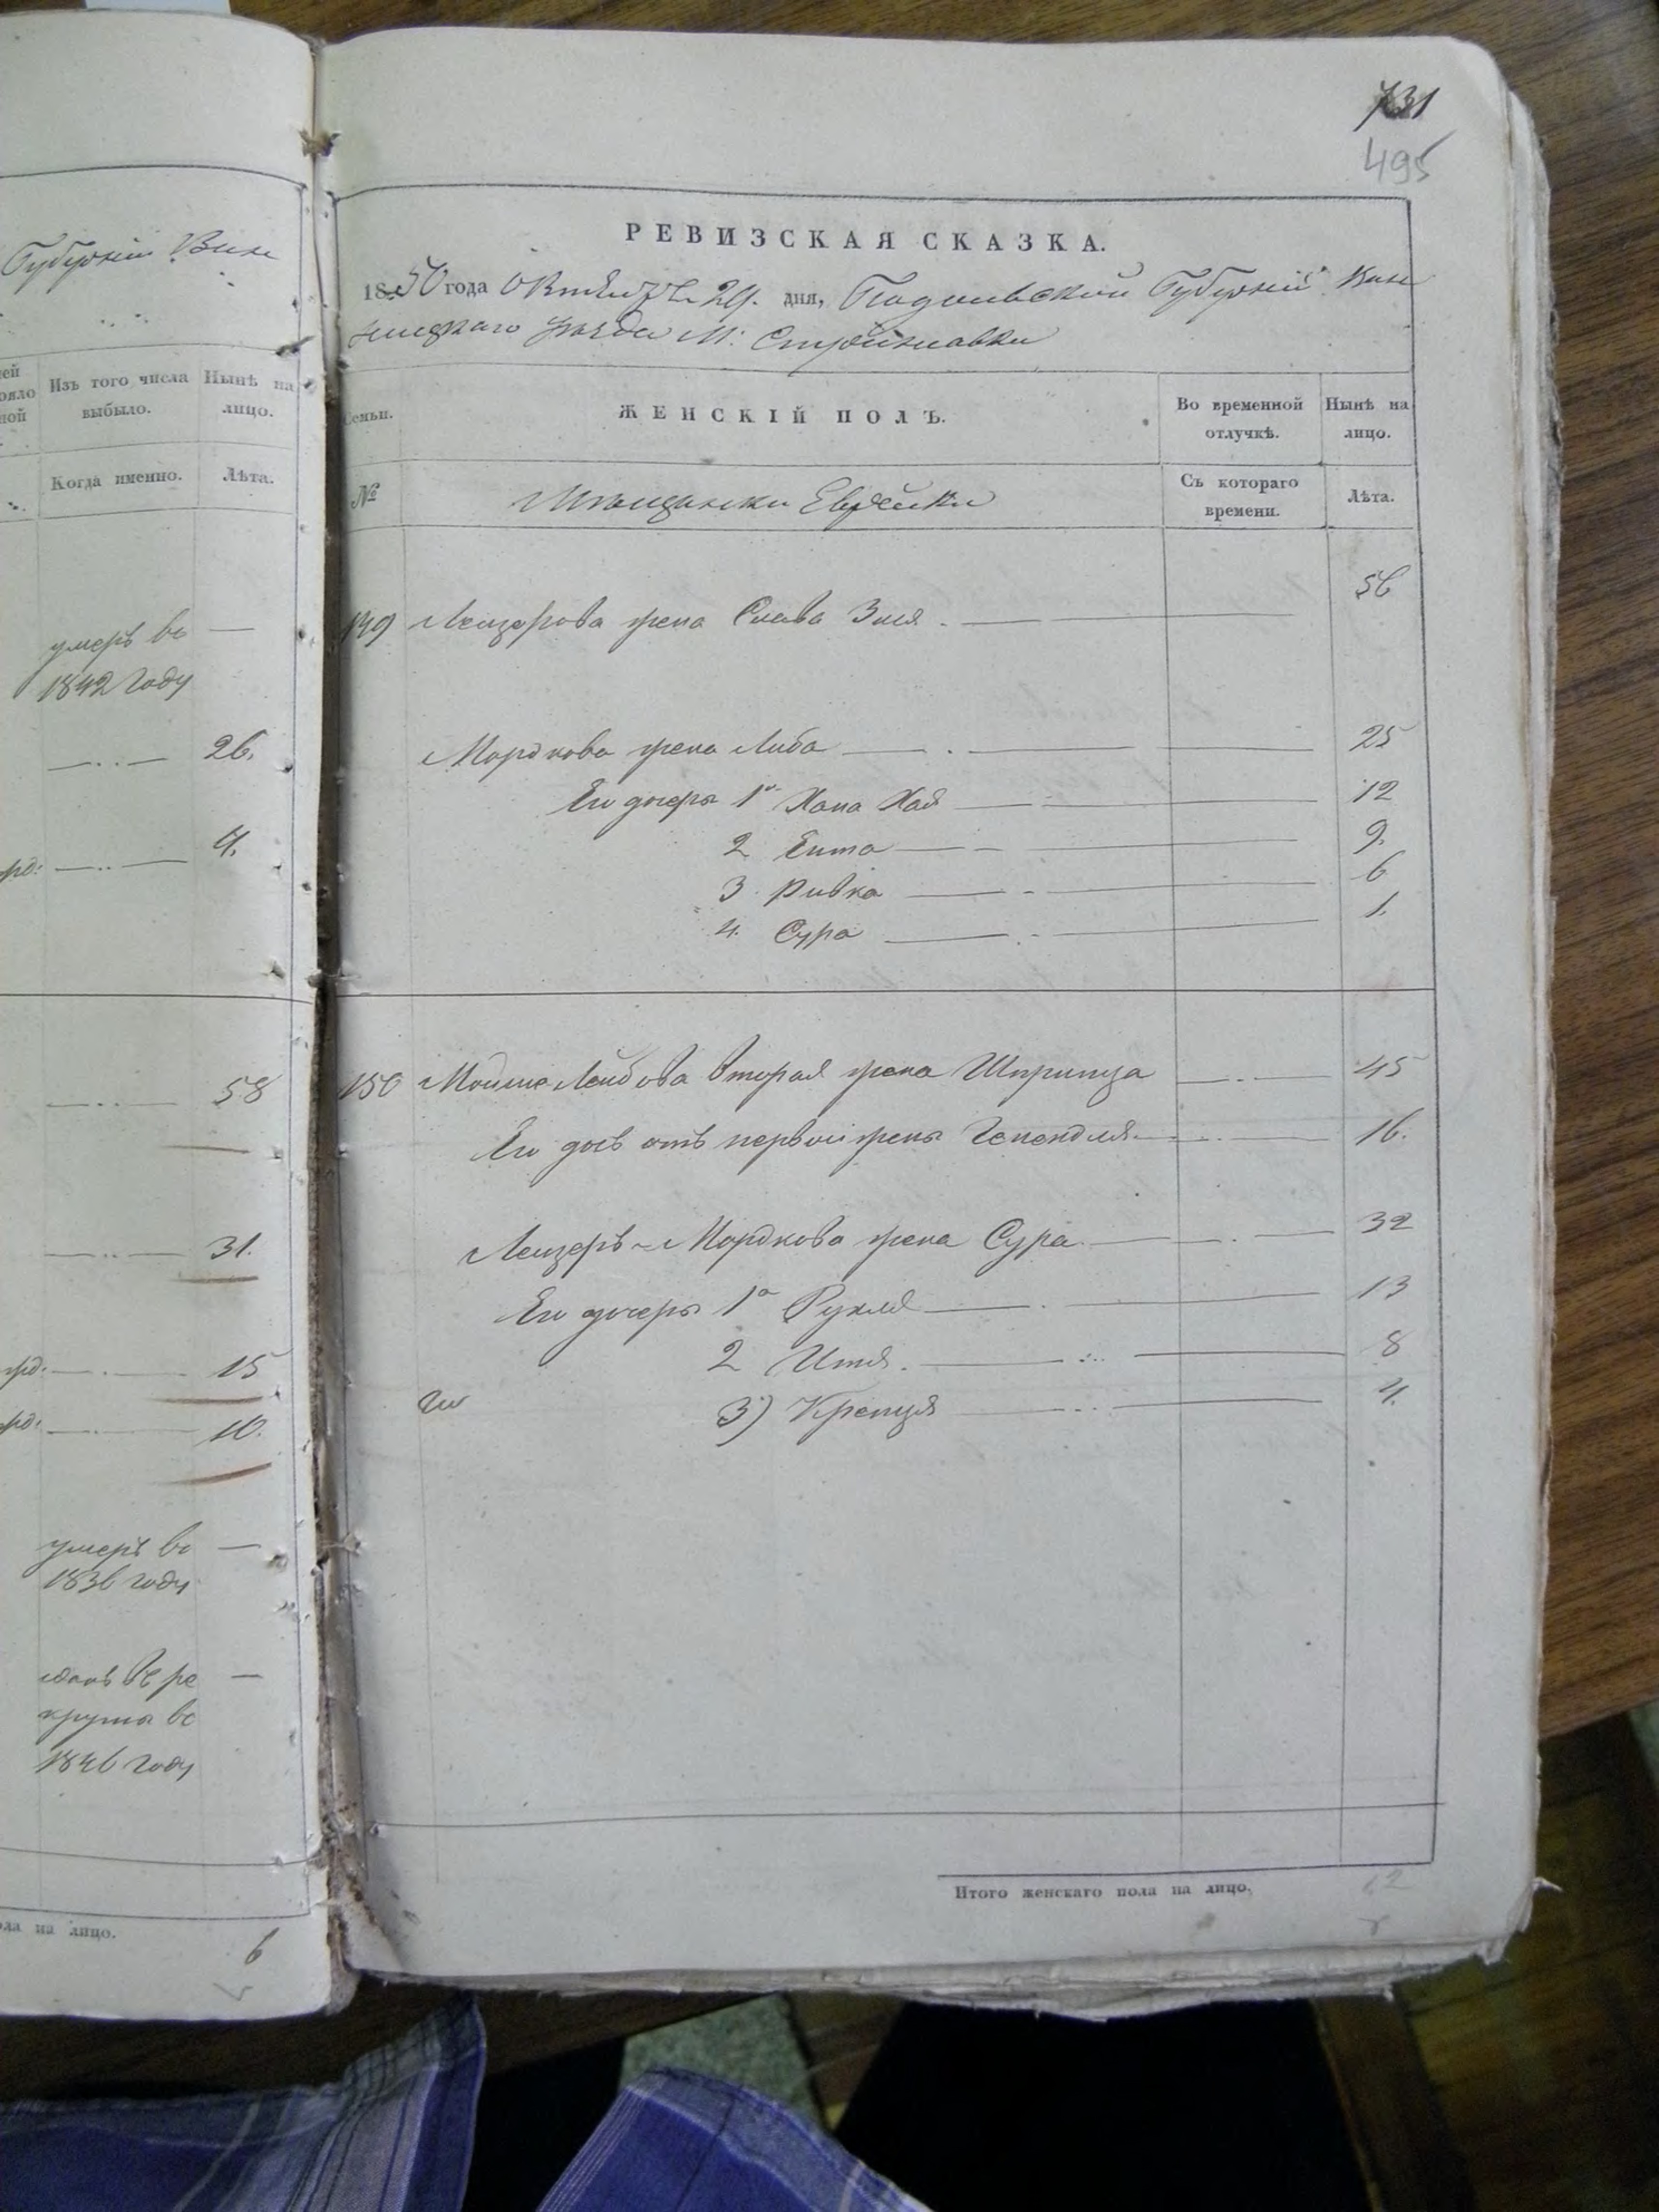 Губерніи Вин
ней
ояло
ной
Изъ того числа
выбыло.
Нынѣ на
лицо.
Когда именно.
Лѣта.
умеръ въ —
1842 году
26.
4.
58
31.
15
10.
умеръ въ —
1836 году
въ ре —
круты въ
1846 году
ола на лицо.
6
731
495
РЕВИЗСКАЯ СКАЗКА.
1850 года Октября 29. дня, Подольской Губерніи Вин
ницкаго уѣзда М: Стрижавки
Семьи.
ЖЕНСКІЙ ПОЛЪ.
Во временной
отлучкѣ.
Нынѣ на
лицо.
№
Мѣщанки Еврейки
Съ котораго
времени.
Лѣта.
149 Лейзерова жена Слава Зися. 56
Мордкова жена Либа 25
Его дочери 1я Хана Хая 12
2 Ента 9.
3 Ривка 6
4. Сура 1.
150 Мошка Лейбова вторая жена Шпринца 45
Его дочь отъ первой жены Генендля 16.
Лейзеръ-Мордкова жена Сура 32
Его дочери 1я Рухля 13
2 Итя. 8
3) Крейнця 4.
Итого женскаго пола на лицо.
12